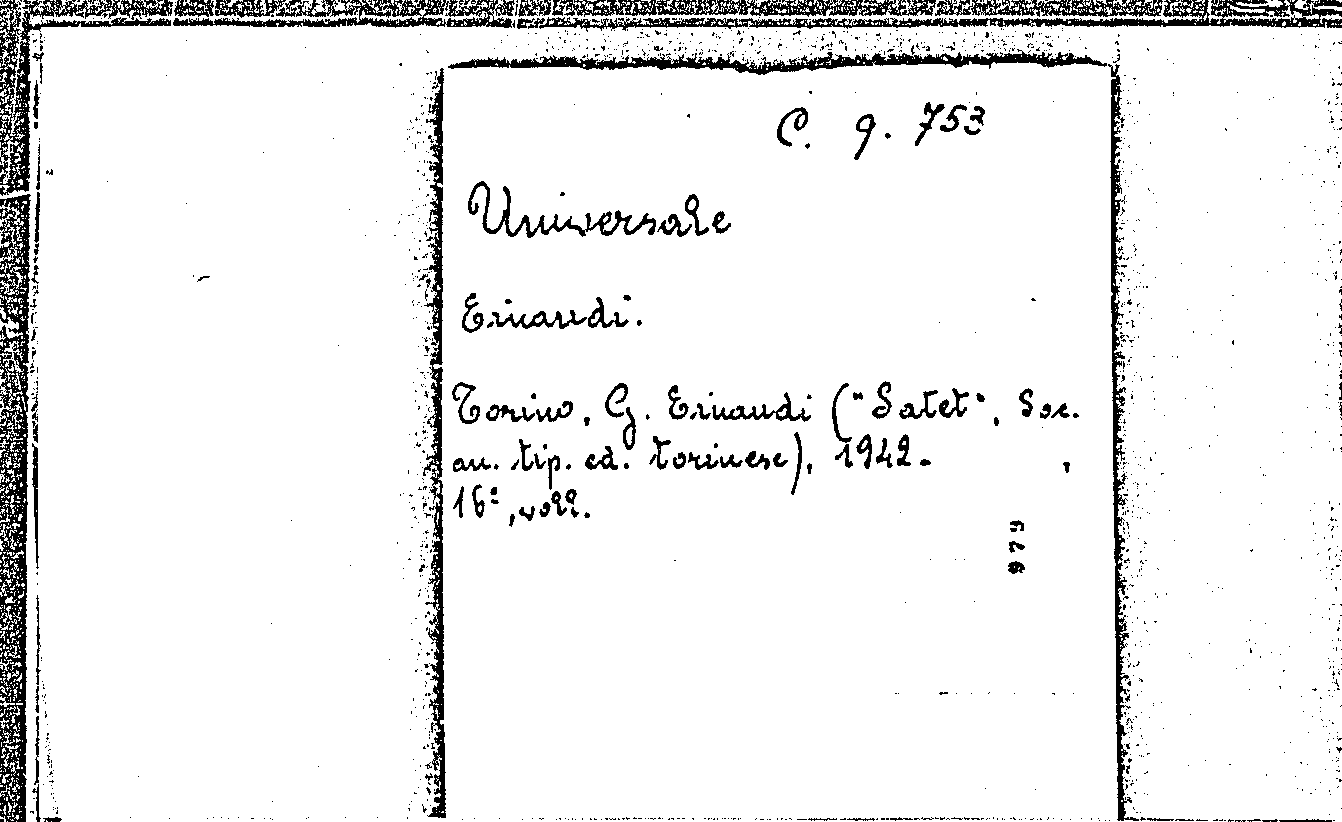 C. g. 753
Universale
Einaudi.
Torino, G. Einaudi ("Satet", Soc.
an. tip. ed. torinese), 1942.
16°, voll.
979